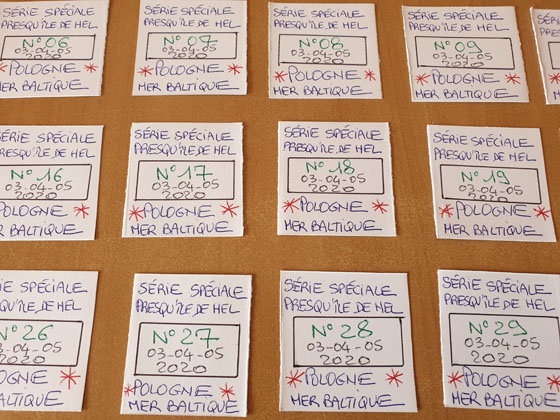 SÉRIE SPÉCIALE
PRESQU'ÎLE DE HEL
N° 06
03-04-05
2020
*POLOGNE*
MER BALTIQUE
SÉRIE SPÉCIALE
PRESQU'ÎLE DE HEL
N° 07
03-04-05
2020
*POLOGNE*
MER BALTIQUE
SÉRIE SPÉCIALE
PRESQU'ÎLE DE HEL
N° 08
03-04-05
2020
*POLOGNE*
MER BALTIQUE
SÉRIE SPÉCIALE
PRESQU'ÎLE DE HEL
N° 09
03-04-05
2020
*POLOGNE*
MER BALTIQUE
SÉRIE SPÉCIALE
PRESQU'ÎLE DE HEL
N° 16
03-04-05
2020
POLOGNE*
MER BALTIQUE
SÉRIE SPÉCIALE
PRESQU'ÎLE DE HEL
N° 17
03-04-05
2020
*POLOGNE*
MER BALTIQUE
SÉRIE SPÉCIALE
PRESQU'ÎLE DE HEL
N° 18
03-04-05
2020
*POLOGNE*
MER BALTIQUE
SÉRIE SPÉCIALE
PRESQU'ÎLE DE HEL
N° 19
03-04-05
2020
*POLOGNE*
MER BALTIQUE
SÉRIE SPÉCIALE
PRESQU'ÎLE DE HEL
N° 26
03-04-05
2020
POLOGNE*
BALTIQUE
SÉRIE SPÉCIALE
PRESQU'ÎLE DE HEL
N° 27
03-04-05
2020
*POLOGNE*
MER BALTIQUE
SÉRIE SPÉCIALE
PRESQU'ÎLE DE HEL
N° 28
03-04-05
2020
*POLOGNE*
MER BALTIQUE
SÉRIE SPÉCIALE
PRESQU'ÎLE DE HEL
N° 29
03-04-05
2020
*POLOGNE*
MER BALTIQUE